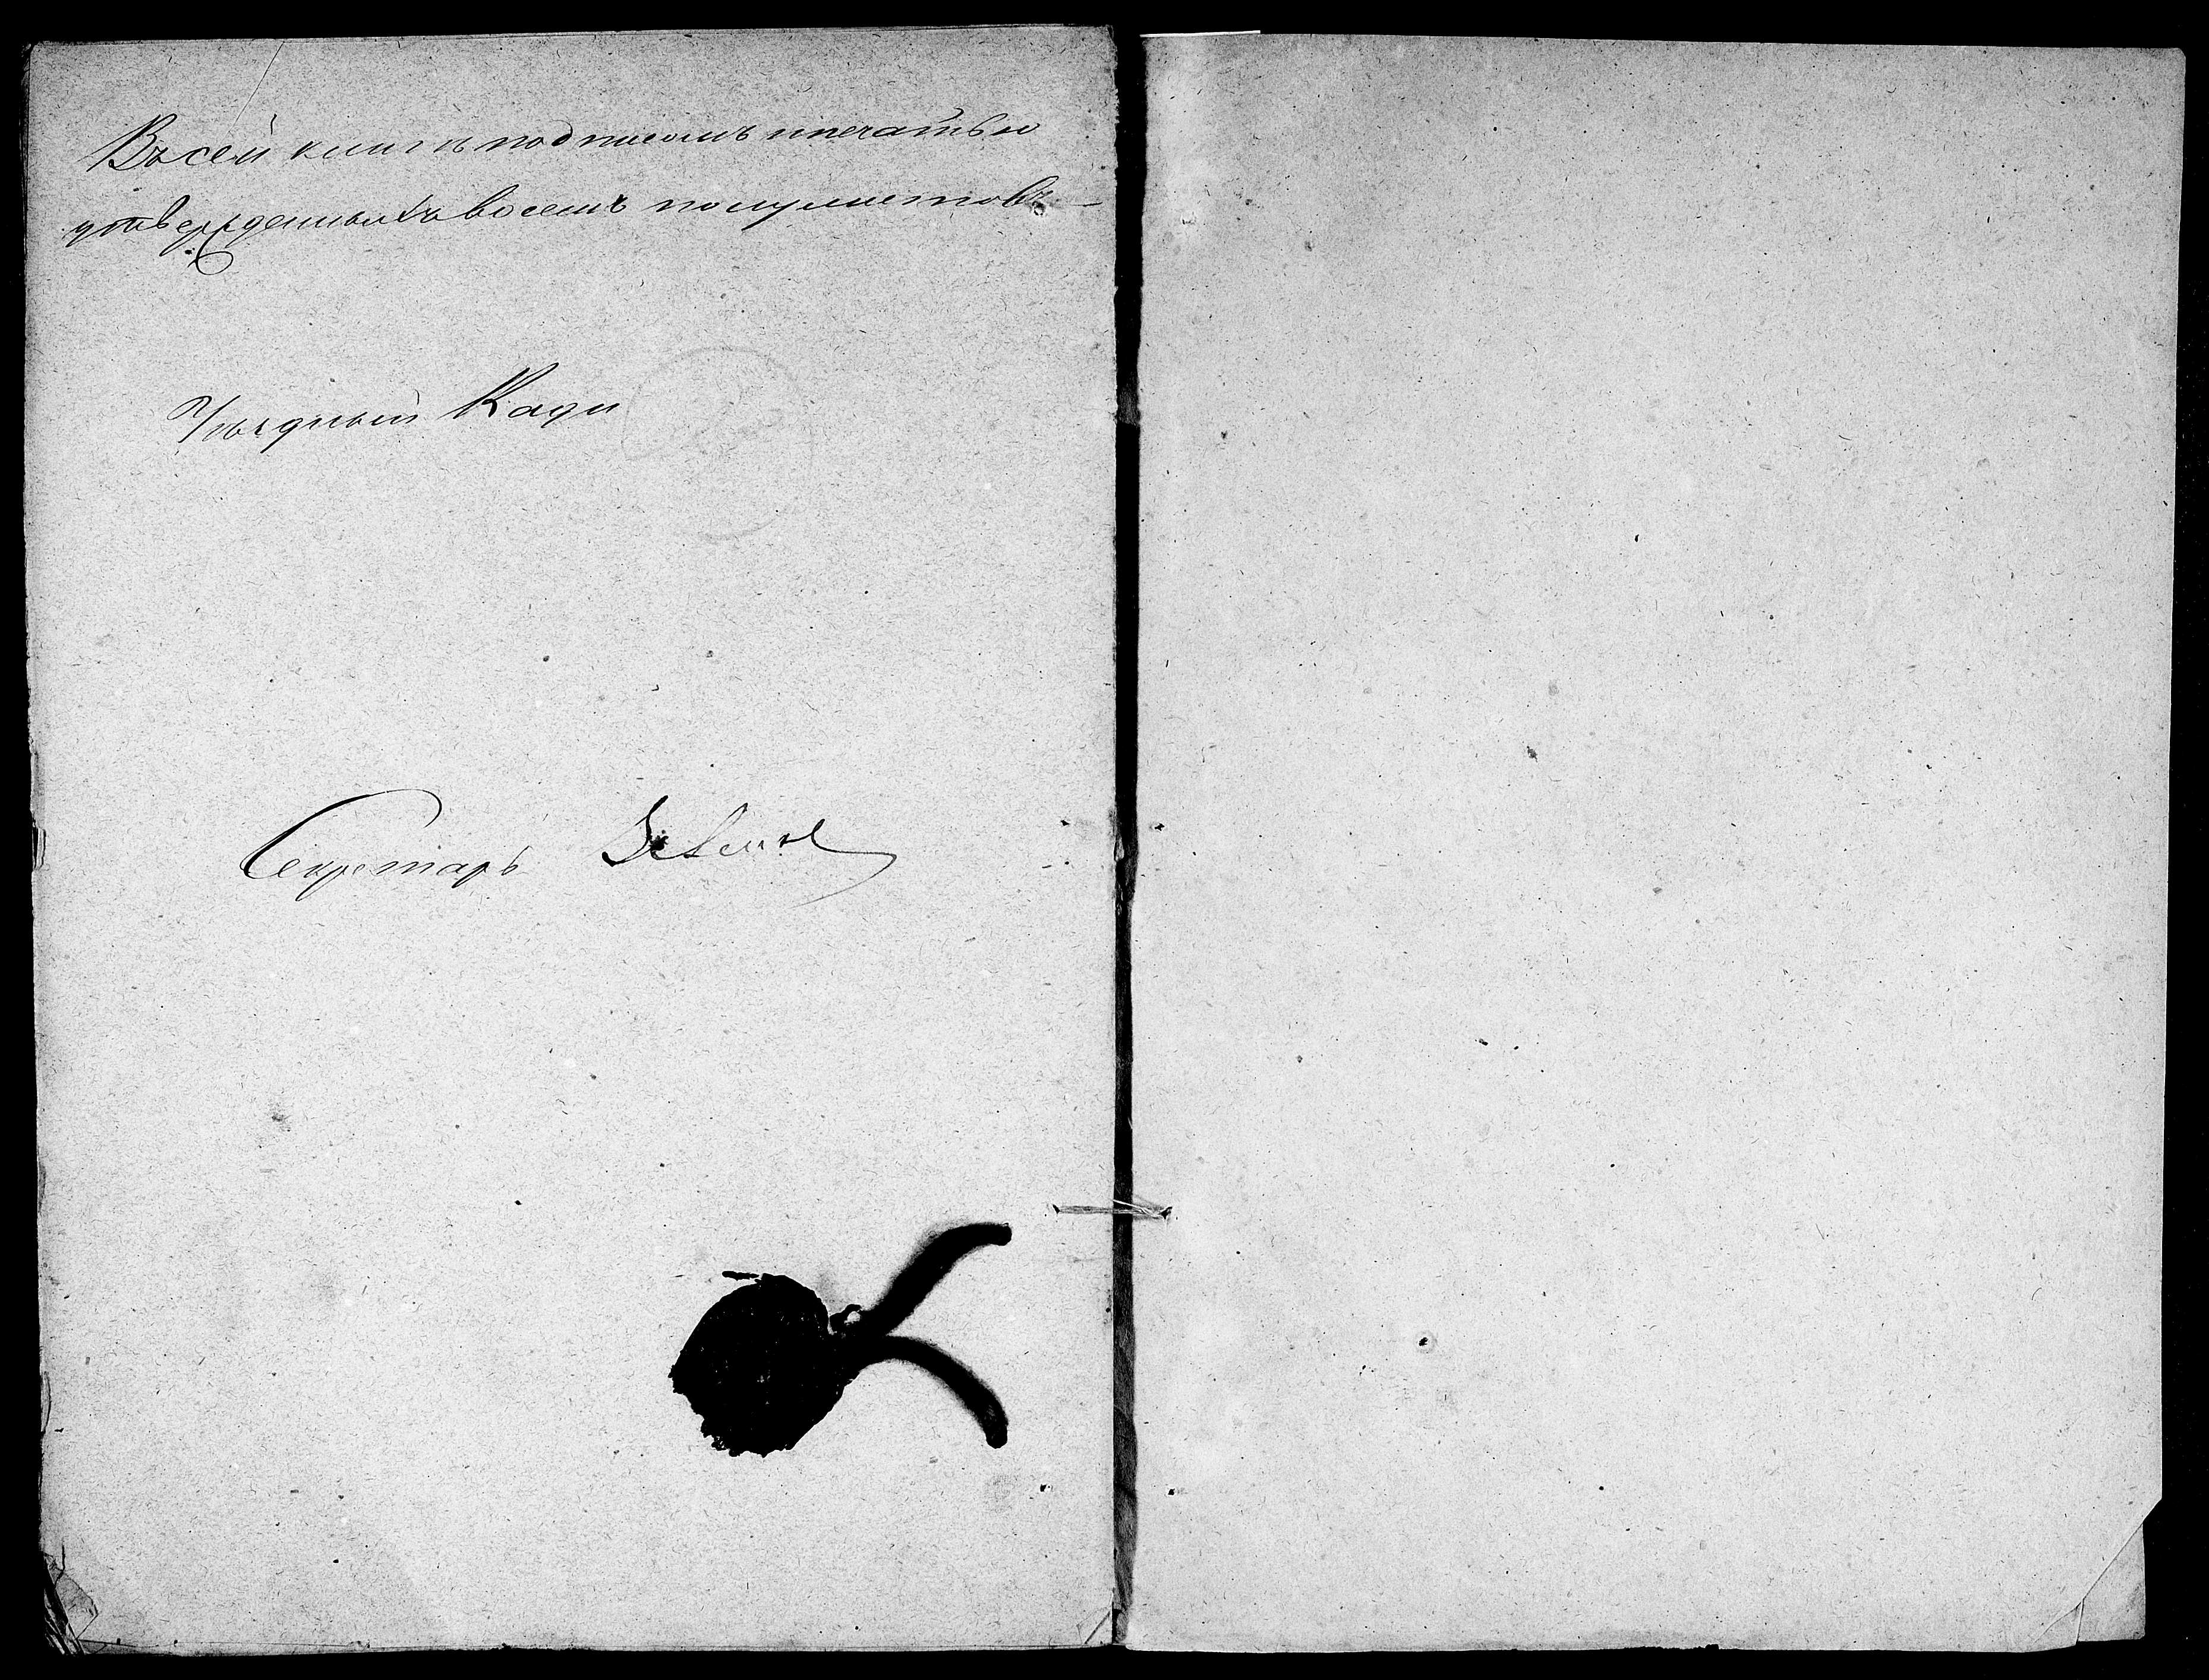 Въ сей книгѣ подписомъ и печатью
утвержденныхъ восемь полулистовъ
Уѣздный Кади
Секретарь